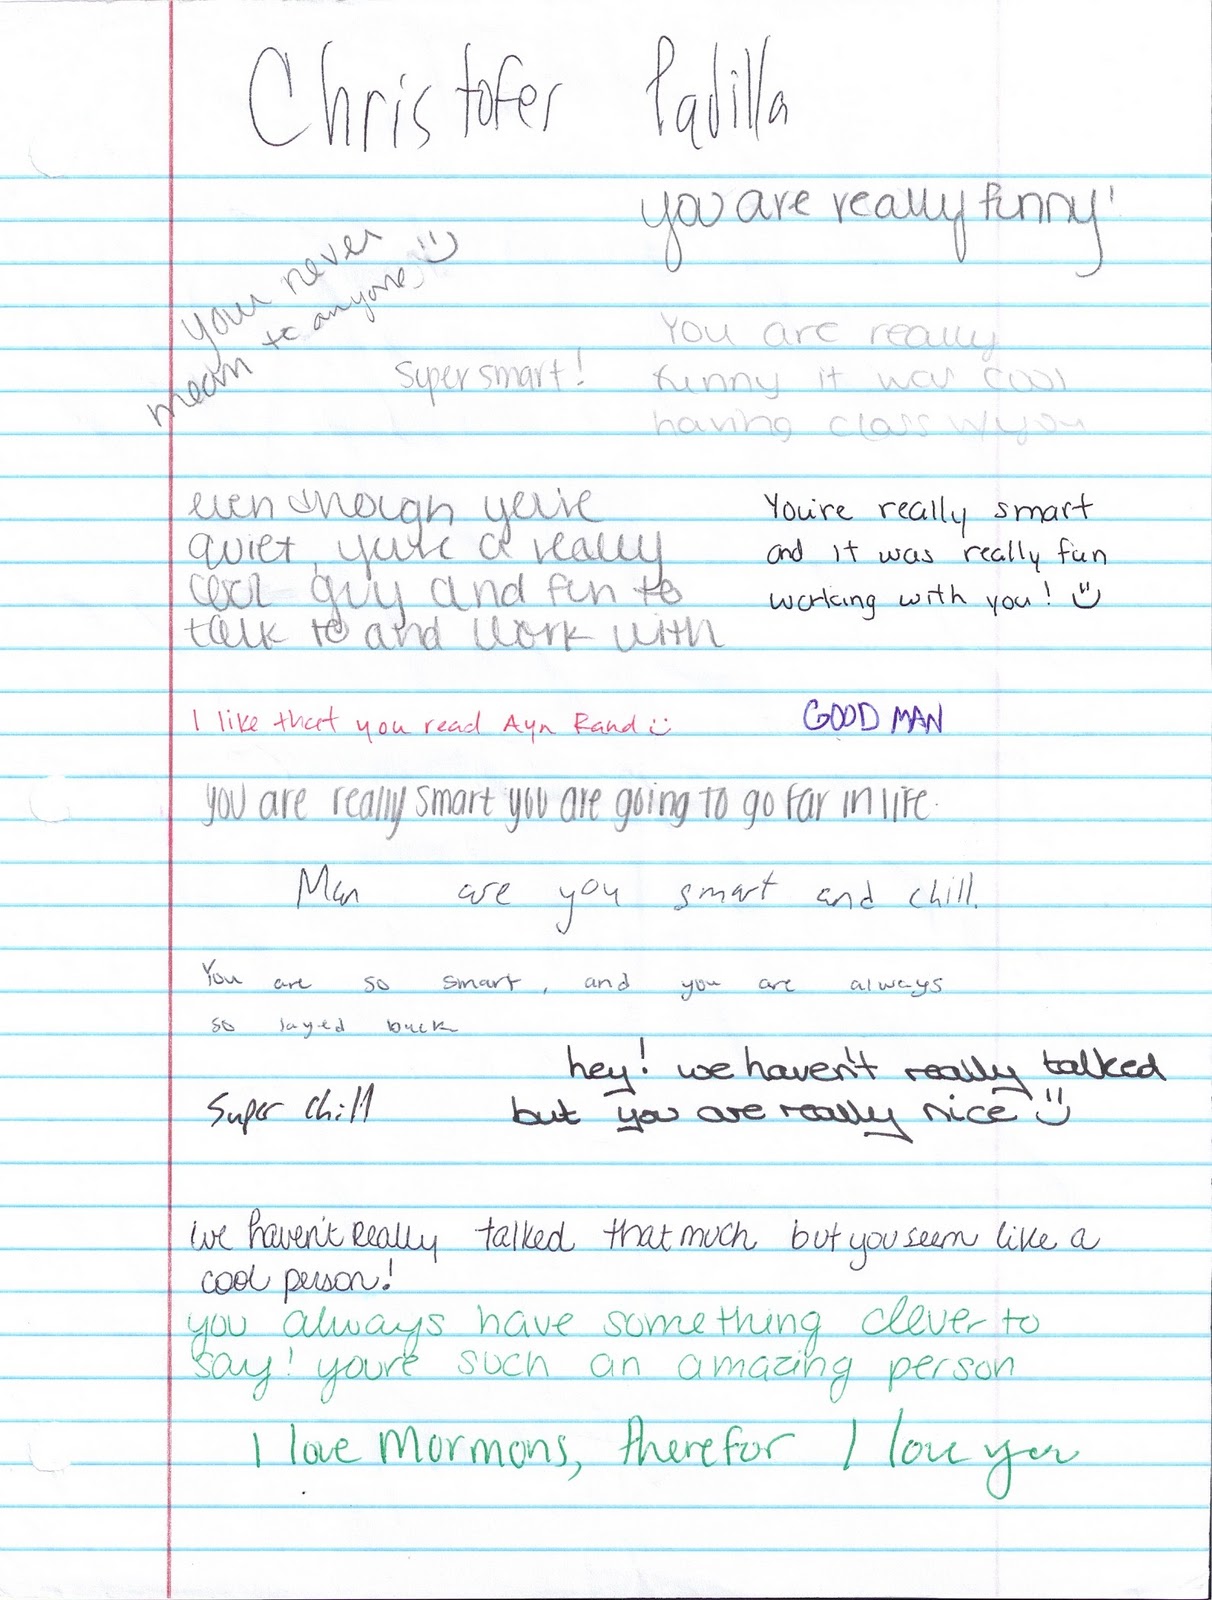 Christofer Padilla
you are really funny!
your never
mean to anyone :)
Super smart!
You are really
funny it was cool
having class w/you
even though you're
quiet, you're a really
cool guy and fun to
talk to and work with
You're really smart
and it was really fun
working with you! :)
I like that you read Ayn Rand :)
GOOD MAN
you are really smart you are going to go far in life.
Man are you smart and chill.
You are so smart, and you are always
so layed back
hey! we haven't really talked
but you are really nice :)
Super chill
we haven't really talked that much but you seem like a
cool person!
you always have something clever to
say! you're such an amazing person
I love Mormons, therefor I love you